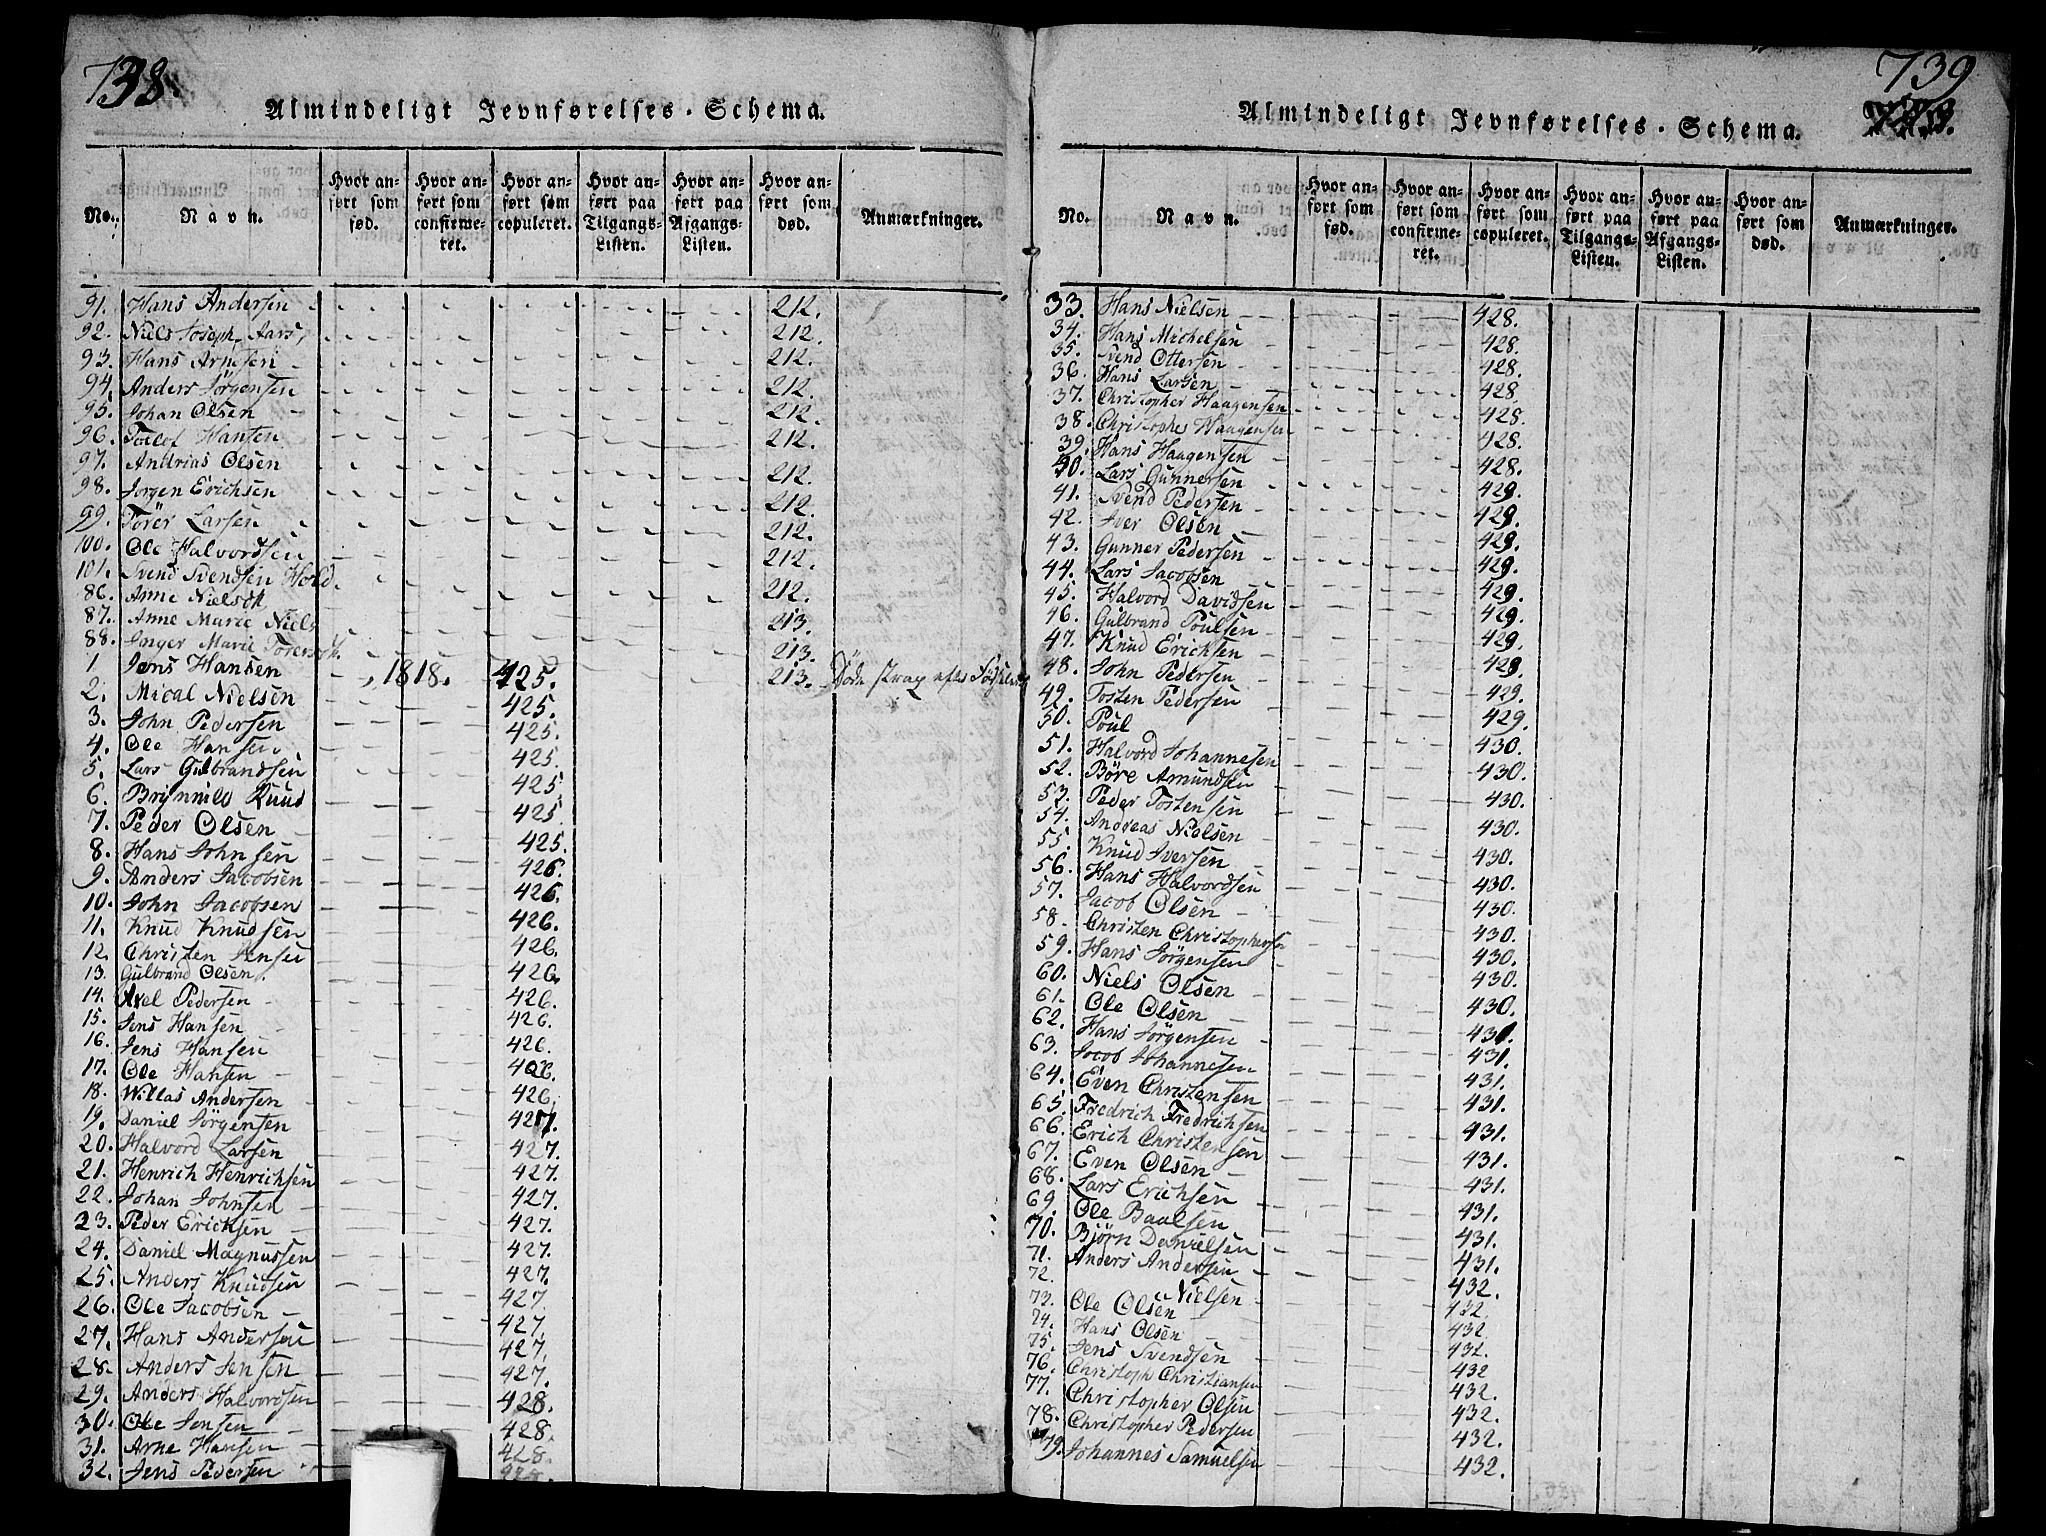 738.
Almindeligt Jevnførelses-Schema.
No. Navn. Hvor anført som fød. Hvor anført som confirmeret. Hvor anført som copuleret. Hvor anført paa Tilgangs-Listen. Hvor anført paa Afgangs-Listen. Hvor anført som død. Anmærkninger.
91. Hans Andersen 212.
92. Niels Joseph Aars, 212.
93. Hans Arnesen 212.
94. Anders Jörgensen 212.
95. Johan Olsen 212.
96. Hansen 212.
97. Andrias Olsen 212.
98. Jorgen Erichsen 212.
99. Törer Larsen 212.
100. Ole Halvordsen 212.
101. Svend Svendsen 212.
86. Anne Nielsdt 213.
87. Anne Marie Niels 213.
88. Inger Marie 213. Döde strax efter
1. Jens Hansen 1818. 425.
2. Mical Nielsen 425.
3. John Pedersen 425.
4. Ole Hansen 425.
5. Lars Gulbrandsen 425.
6. Brynnild Ruud 425.
7. Peder Olsen 425.
8. Hans Johnsen 426.
9. Anders Jacobsen 426.
10. John Jacobsen 426.
11. Knud Knudsen 426.
12. Christen Jensen 426.
13. Gulbrand Olsen 426.
14. Axel Pedersen 426.
15. Jens Hansen 426.
16. Jens Hansen 426.
17. Ole Hansen 426.
18. Willas Andersen 427.
19. Daniel Jörgensen 427.
20. Halvord Larsen 427.
21. Henrich Henrichsen 427.
22. Johan Johnsen 427.
23. Peder Ericksen 427.
24. Daniel Magnussen 427.
25. Anders Knudsen 427.
26. Ole Jacobsen 427.
27. Hans Andersen 427.
28. Anders Jensen 427.
29. Anders Halvordsen 428.
30. Ole Jensen 428.
31. Arne Hansen 428.
32. Jens Pedersen 428.
739
Almindeligt Jevnførelses-Schema.
No. Navn. Hvor anført som fød. Hvor anført som confirmeret. Hvor anført som copuleret. Hvor anført paa Tilgangs-Listen. Hvor anført paa Afgangs-Listen. Hvor anført som død. Anmærkninger.
33. Hans Nielsen 428.
34. Hans Michelsen 428.
35. Svend Ottersen 428.
36. Hans Larsen 428.
37. Christopher Haagensen 428.
38. Christopher Haagensen 428.
39. Hans Haagensen 428.
40. Lars Gunnersen 429.
41. Svend Pedersen 429.
42. Iver Olsen 429.
43. Gunner Pedersen 429.
44. Lars Jacobsen 429.
45. Halvord Davidsen 429.
46. Gulbrand Poulsen 429.
47. Knud Erichsen 429.
48. John Pedersen 429.
49. Tosten Pedersen 429.
50. Poul 430.
51. Halvord Johannesen 430.
52. Böre Amundsen 430.
53. Peder Tostensen 430.
54. Andreas Nielsen 430.
55. Knud Iversen 430.
56. Hans Halvordsen 430.
57. Jacob Olsen 430.
58. Christen Christophersen 430.
59. Hans Jörgensen 430.
60. Niels Olsen 430.
61. Ole Olsen 431.
62. Hans Jörgensen 431.
63. Jocob Johannesen 431.
64. Even Christensen 431.
65. Fredrich Fredrichsen 431.
66. Erich Christensen 431.
67. Even Olsen 431.
68. Lars Erichsen 431.
69. Ole Baalsen 431.
70. Björn Danielsen 431.
71. Anders Andersen 432.
72. Nielsen 432.
73. Ole Olsen 432
74. Hans Olsen 432.
75. Jens Svendsen 432
76. Christoph Christiansen 432.
77. Christopher Olsen 432.
78. Christopher Pedersen 432.
79. Johannes Samuelsen 432.